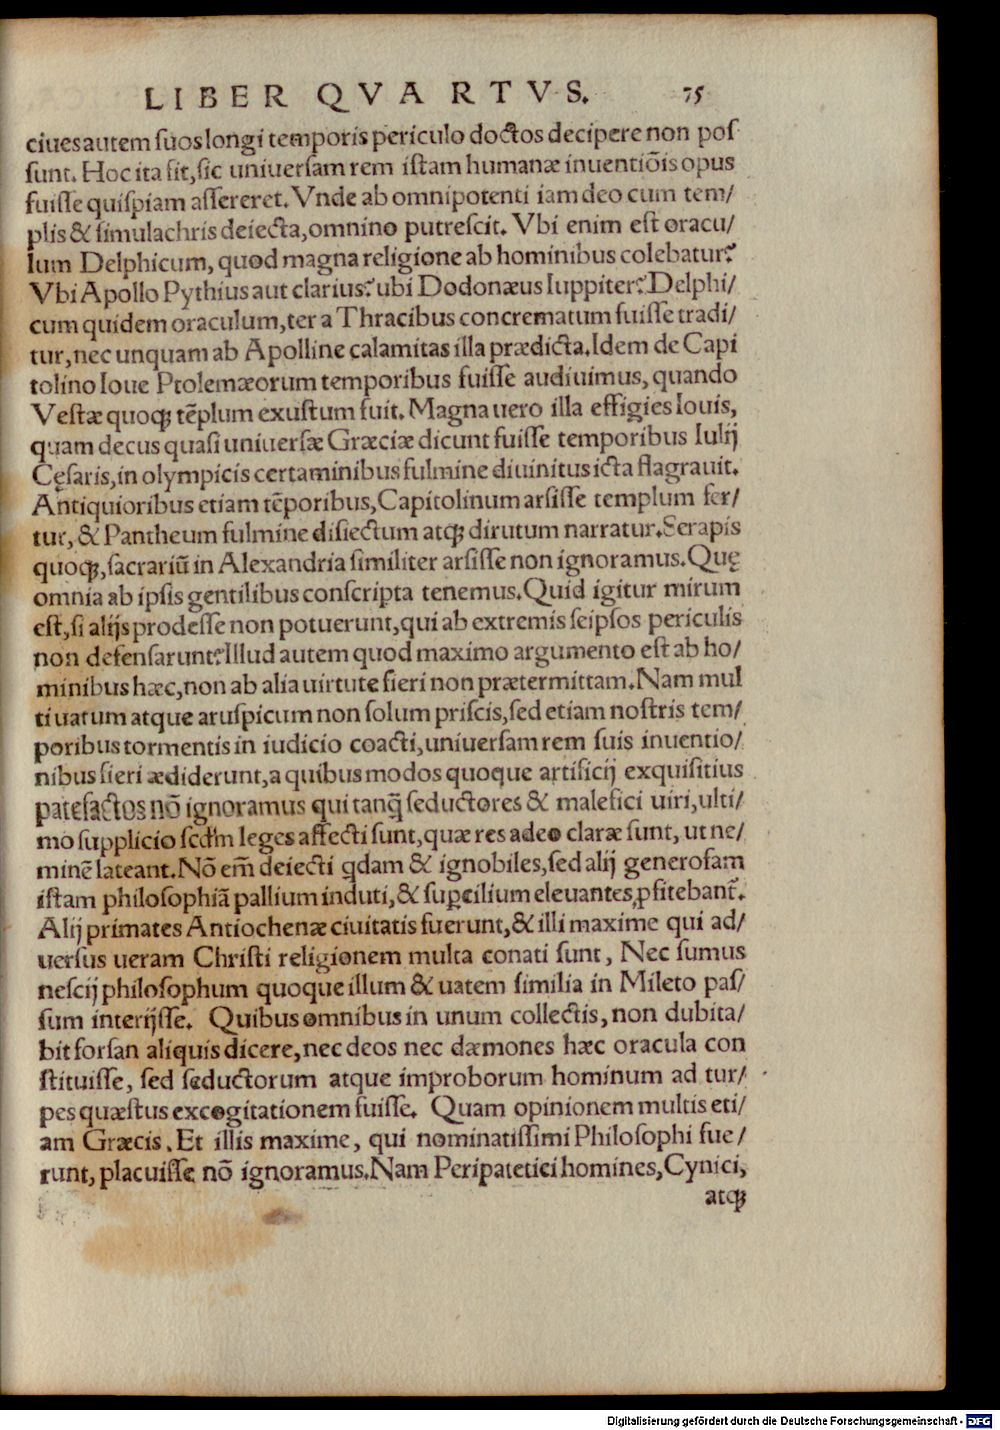 LIBER QVARTVS. 75
ciues autem suos longi temporis periculo doctos decipere non pos
sunt. Hoc ita sit, sic uniuersam rem istam humanæ inuentiõis opus
fuisse quispiam assereret. Vnde ab omnipotenti iam deo cum tem/
plis & simulachris deiecta, omnino putrescit. Vbi enim est oracu/
lum Delphicum, quod magna religione ab hominibus colebatur?
Vbi Apollo Pythius aut clarius? ubi Dodonæus Iuppiter? Delphi/
cum quidem oraculum, ter a Thracibus concrematum fuisse tradi/
tur, nec unquam ab Apolline calamitas illa prædicta. Idem de Capi
tolino Ioue Ptolemæorum temporibus fuisse audiuimus, quando
Vestæ quoqꝫ tẽplum exustum fuit. Magna uero illa effigies Iouis,
quam decus quasi uniuersæ Græciæ dicunt fuisse temporibus Iulij
Cęsaris, in olympicis certaminibus fulmine diuinitus icta flagrauit.
Antiquioribus etiam tẽporibus, Capitolinum arsisse templum fer/
tur, & Pantheum fulmine disiectum atqꝫ dirutum narratur. Serapis
quoqꝫ, sacrariũ in Alexandria similiter arsisse non ignoramus. Quę
omnia ab ipsis gentilibus conscripta tenemus. Quid igitur mirum
est, si alijs prodesse non potuerunt, qui ab extremis seipsos periculis
non defensarunt? Illud autem quod maximo argumento est ab ho/
minibus hæc, non ab alia uirtute fieri non prætermittam. Nam mul
ti uatum atque aruspicum non solum priscis, sed etiam nostris tem/
poribus tormentis in iudicio coacti, uniuersam rem suis inuentio/
nibus fieri ædiderunt, a quibus modos quoque artificij exquisitius
patefactos nõ ignoramus qui tanq̃ seductores & malefici uiri, ulti/
mo supplicio scd̃m leges affecti sunt, quæ res adeo claræ sunt, ut ne/
minẽ lateant. Nõ em̃ deiecti qdam & ignobiles, sed alij generosam
istam philosophiã pallium induti, & suꝑcilium eleuantes, ꝓfitebant̃.
Alij primates Antiochenæ ciuitatis fuerunt, & illi maxime qui ad/
uersus ueram Christi religionem multa conati sunt, Nec sumus
nescij philosophum quoque illum & uatem similia in Mileto pas/
sum interijsse. Quibus omnibus in unum collectis, non dubita/
bit forsan aliquis dicere, nec deos nec dæmones hæc oracula con
stituisse, sed seductorum atque improborum hominum ad tur/
pes quæstus excogitationem fuisse. Quam opinionem multis eti/
am Græcis. Et illis maxime, qui nominatissimi Philosophi fue/
runt, placuisse nõ ignoramus. Nam Peripatetici homines, Cynici,
atqꝫ
Digitalisierung gefördert durch die Deutsche Forschungsgemeinschaft - DFG